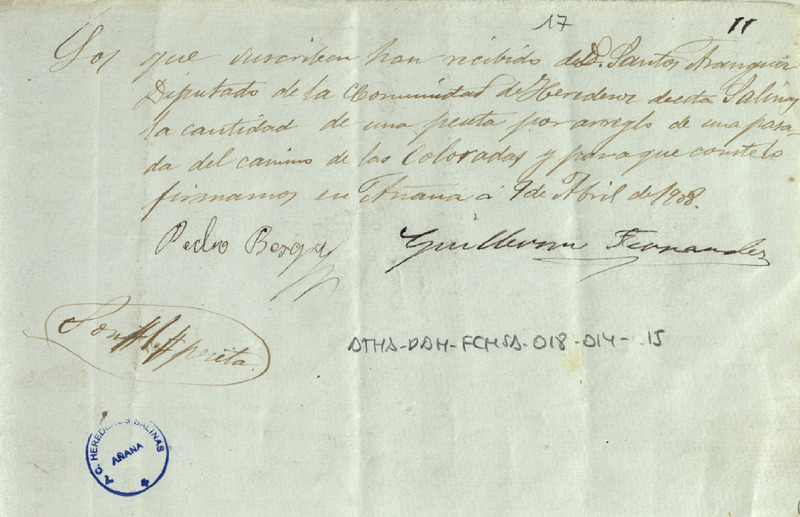 17
11
Los que suscriben han recibido de D. Santos Aranguiz
Diputado de la Comunidad de Herederos de esta Salinas
la cantidad de una peseta por arreglo de una para-
da del camino de las Coloradas y para que conste lo
firmamos en Añana á 9 de Abril de 1908.
Pedro Berga
Guillermo Fernandez
Son #1# peseta.
ATHA-DAH-FCHSA-018-014-15
T. C. HEREDEROS SALINAS
AÑANA